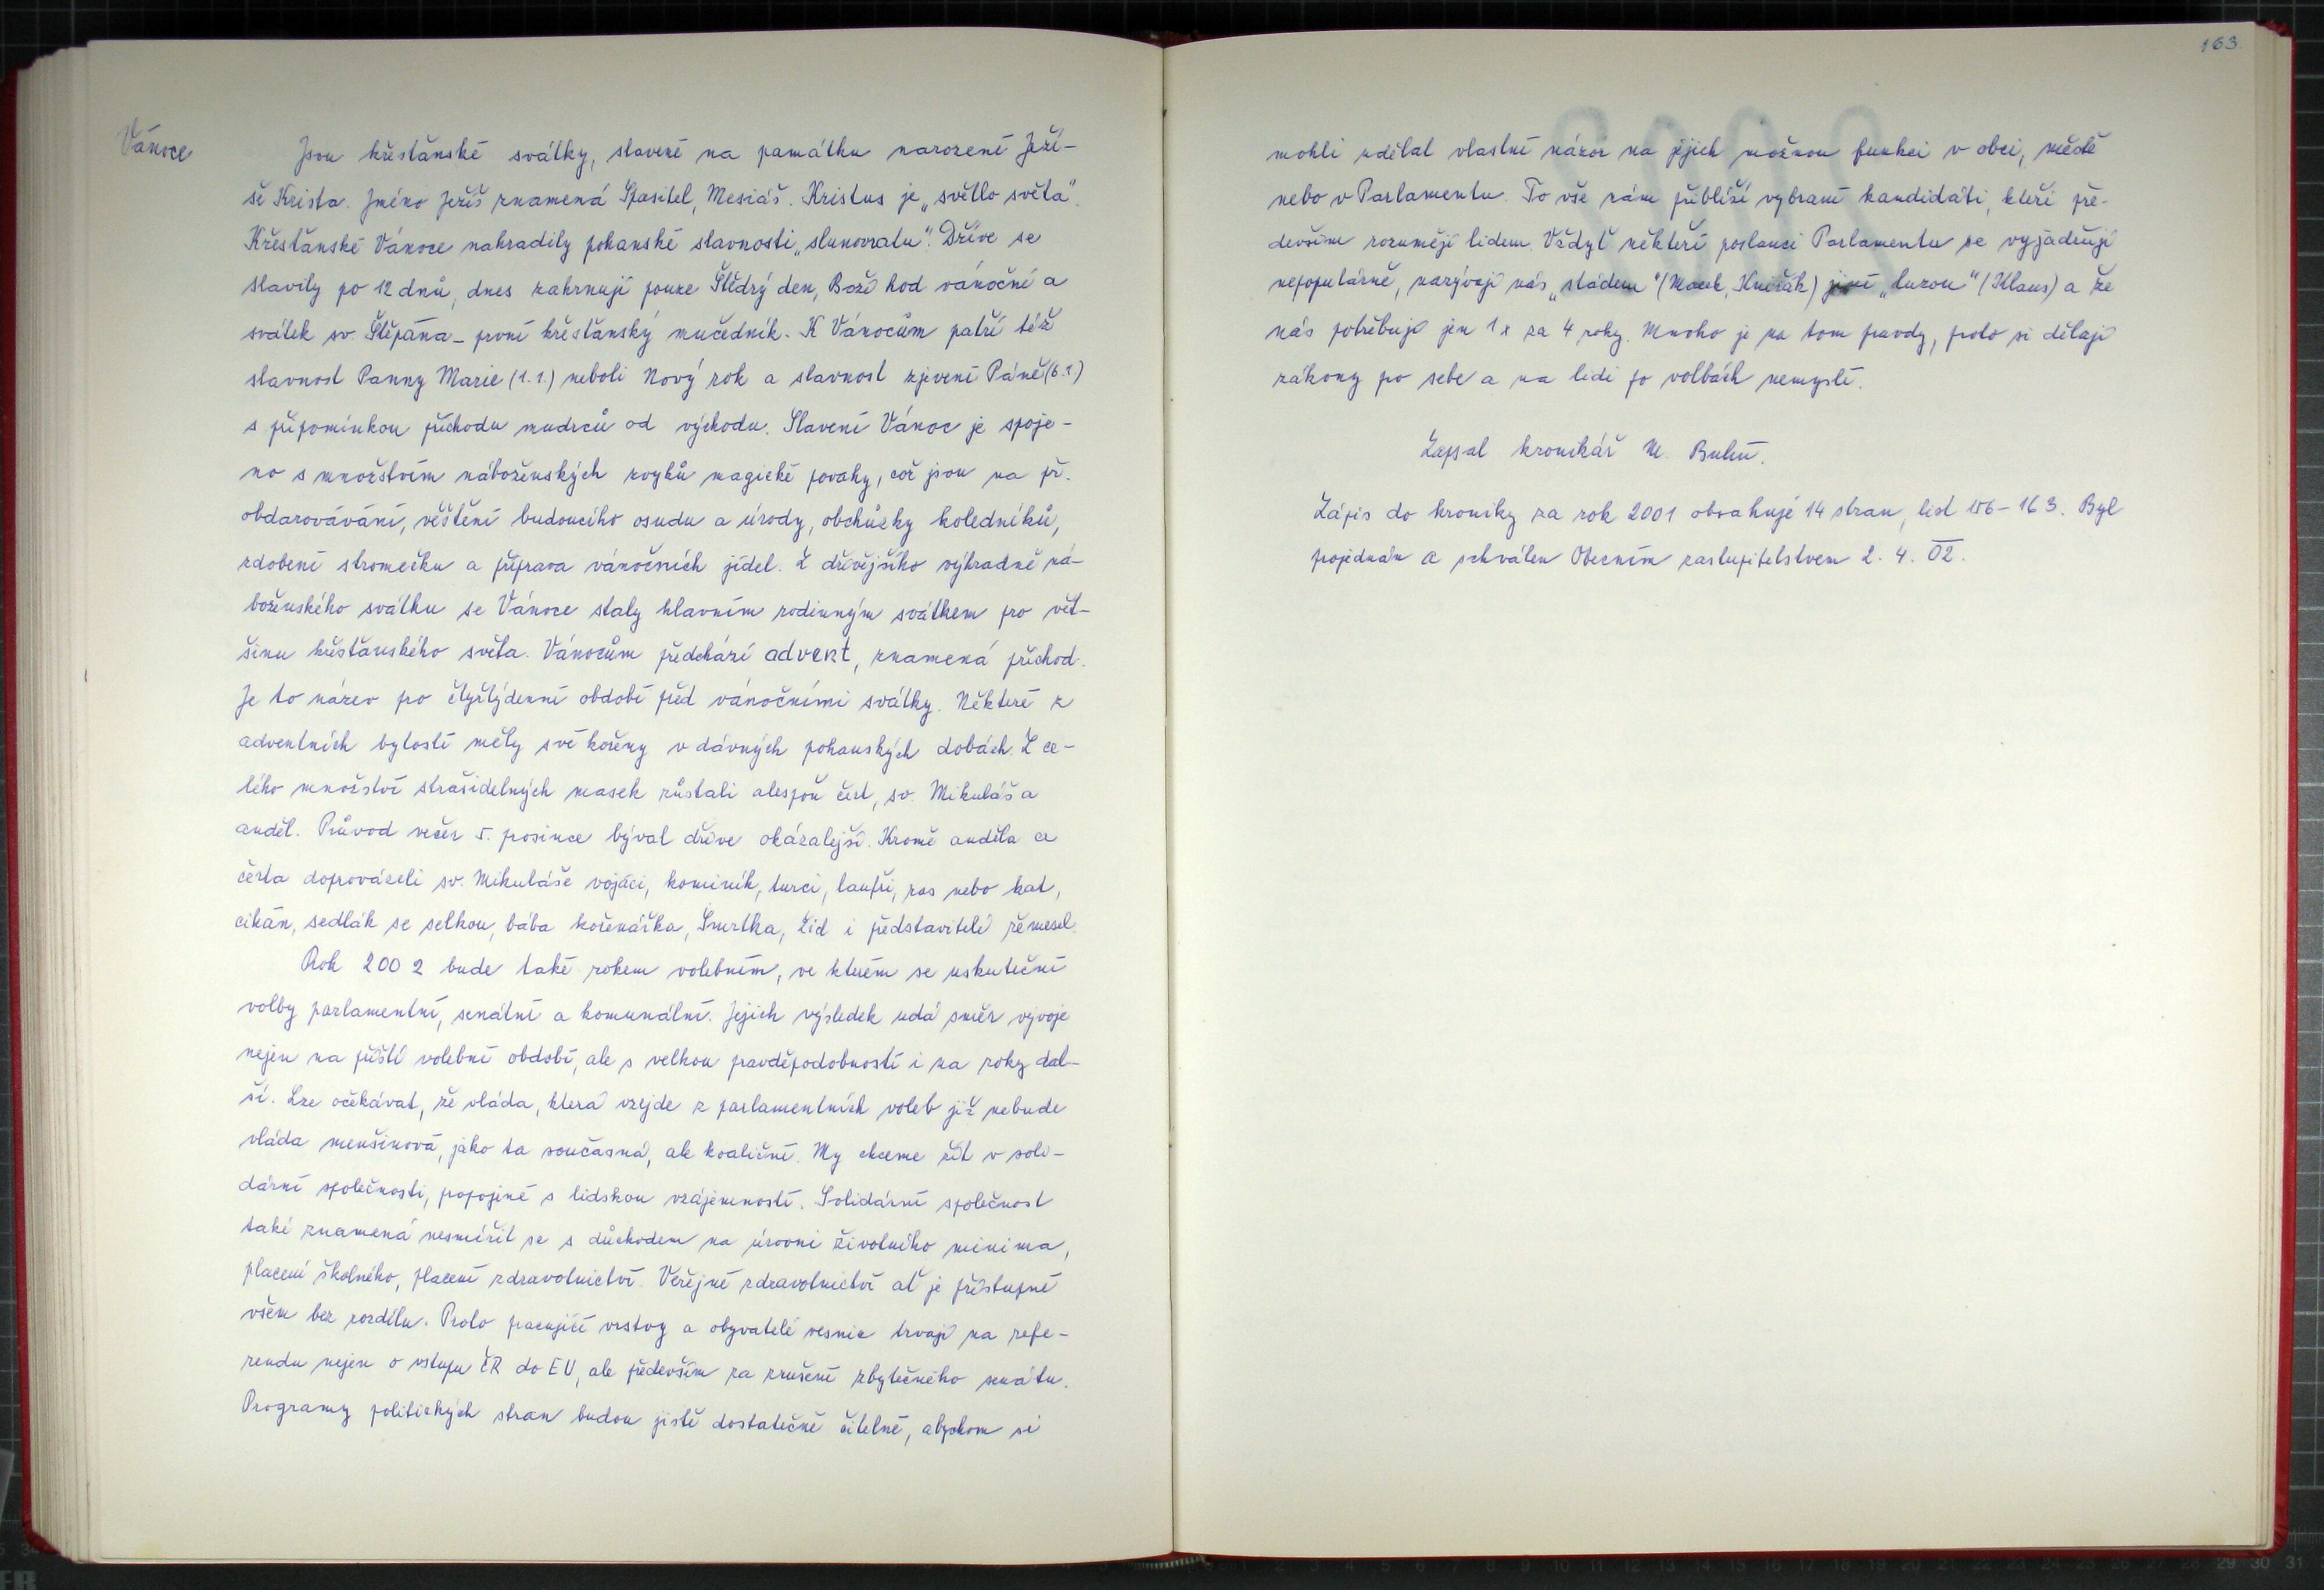 Vánoce
Jsou křesťanské svátky, slavené na památku narození Ježí-
še Krista. Jméno Ježíš znamená Spasitel, Mesiáš. Kristus je „světlo světa".
Křesťanské Vánoce nahradily pohanské slavnosti „slunovratu". Dříve se
slavily po 12 dnů, dnes zahrnují pouze Štědrý den, Boží hod vánoční a
svátek sv. Štěpána - první křesťanský mučedník. K Vánocům patří též
slavnost Panny Marie (1.1.) neboli Nový rok a slavnost zjevení Páně (6.1.)
s připomínkou příchodu mudrců od východu. Slavení Vánoc je spoje-
no s množstvím náboženských zvyků magické povahy, což jsou na př.
obdarovávání, věštění budoucího osudu a úrody, obchůzky koledníků,
zdobení stromečku a příprava vánočních jídel. Z dřívějšího výhradně ná-
boženského svátku se Vánoce staly hlavním rodinným svátkem pro vět-
šinu křesťanského světa. Vánocům předchází advent, znamená příchod.
Je to název pro čtyřtýdenní období před vánočními svátky. Některé z
adventních bytostí měly své kořeny v dávných pohanských dobách. Z ce-
lého množství strašidelných masek zůstali alespoň čert, sv. Mikuláš a
anděl. Průvod večer 5. prosince býval dříve okázalejší. Kromě anděla a
čerta doprovázeli sv. Mikuláše vojáci, kominík, turci, laufři, ras nebo kat,
cikán, sedlák se selkou, bába kořenářka, Smrtka, Žid i představitelé řemesel.
Rok 2002 bude také rokem volebním, ve kterém se uskuteční
volby parlamentní, senátní a komunální. Jejich výsledek udá směr vývoje
nejen na příští volební období, ale s velkou pravděpodobností i na roky dal-
ší. Lze očekávat, že vláda, která vzejde z parlamentních voleb již nebude
vláda menšinová, jako ta současná, ale koaliční. My chceme žít v soli-
dární společnosti, propojené s lidskou vzájemností. Solidární společnost
také znamená nesmířit se s důchodem na úrovni životního minima,
placení školného, placení zdravotnictví. Veřejné zdravotnictví ať je přístupné
všem bez rozdílu. Proto pracující vrstvy a obyvatelé vesnic trvají na refe-
rendu nejen o vstupu ČR do EU, ale především za zrušení zbytečného senátu.
Programy politických stran budou jistě dostatečně čitelné, abychom si
163.
mohli udělat vlastní názor na jejich možnou funkci v obci, městě
nebo v Parlamentu. To vše nám přiblíží vybraní kandidáti, kteří pře-
devším rozumějí lidem. Vždyť někteří poslanci Parlamentu se vyjadřují
nepopulárně, nazývají nás „stádem" (Macek, Knížák) jiní „luzou" (Klaus) a že
nás potřebují jen 1x za 4 roky. Mnoho je na tom pravdy, proto si dělají
zákony po sebe a na lidi po volbách nemyslí.
Zapsal kronikář
Zápis do kroniky za rok 2001 obsahuje 14 stran, list 156 - 163. Byl
projednán a schválen Obecním zastupitelstvem 2. 4. 02.